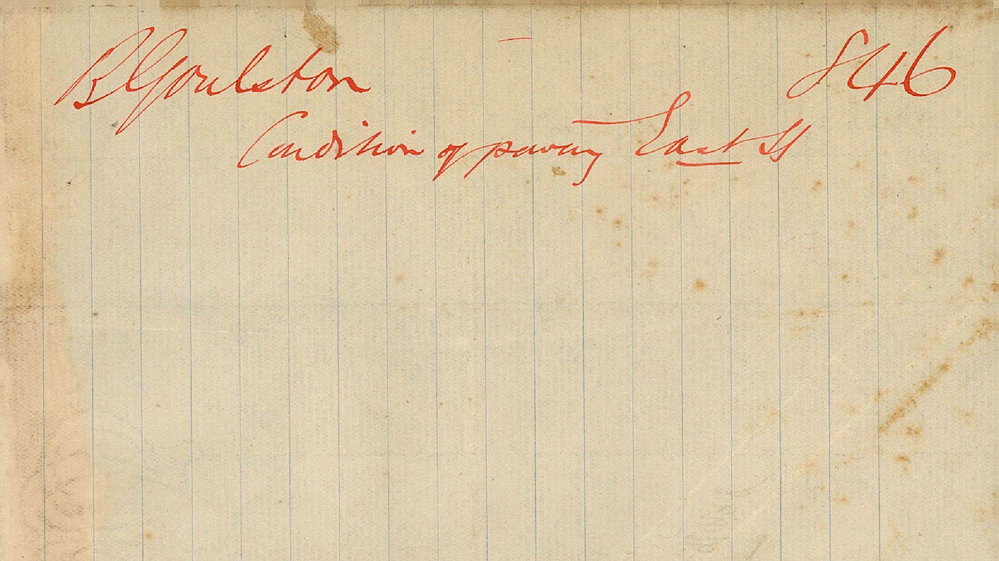 B Goulston 846
Condition of paving East St